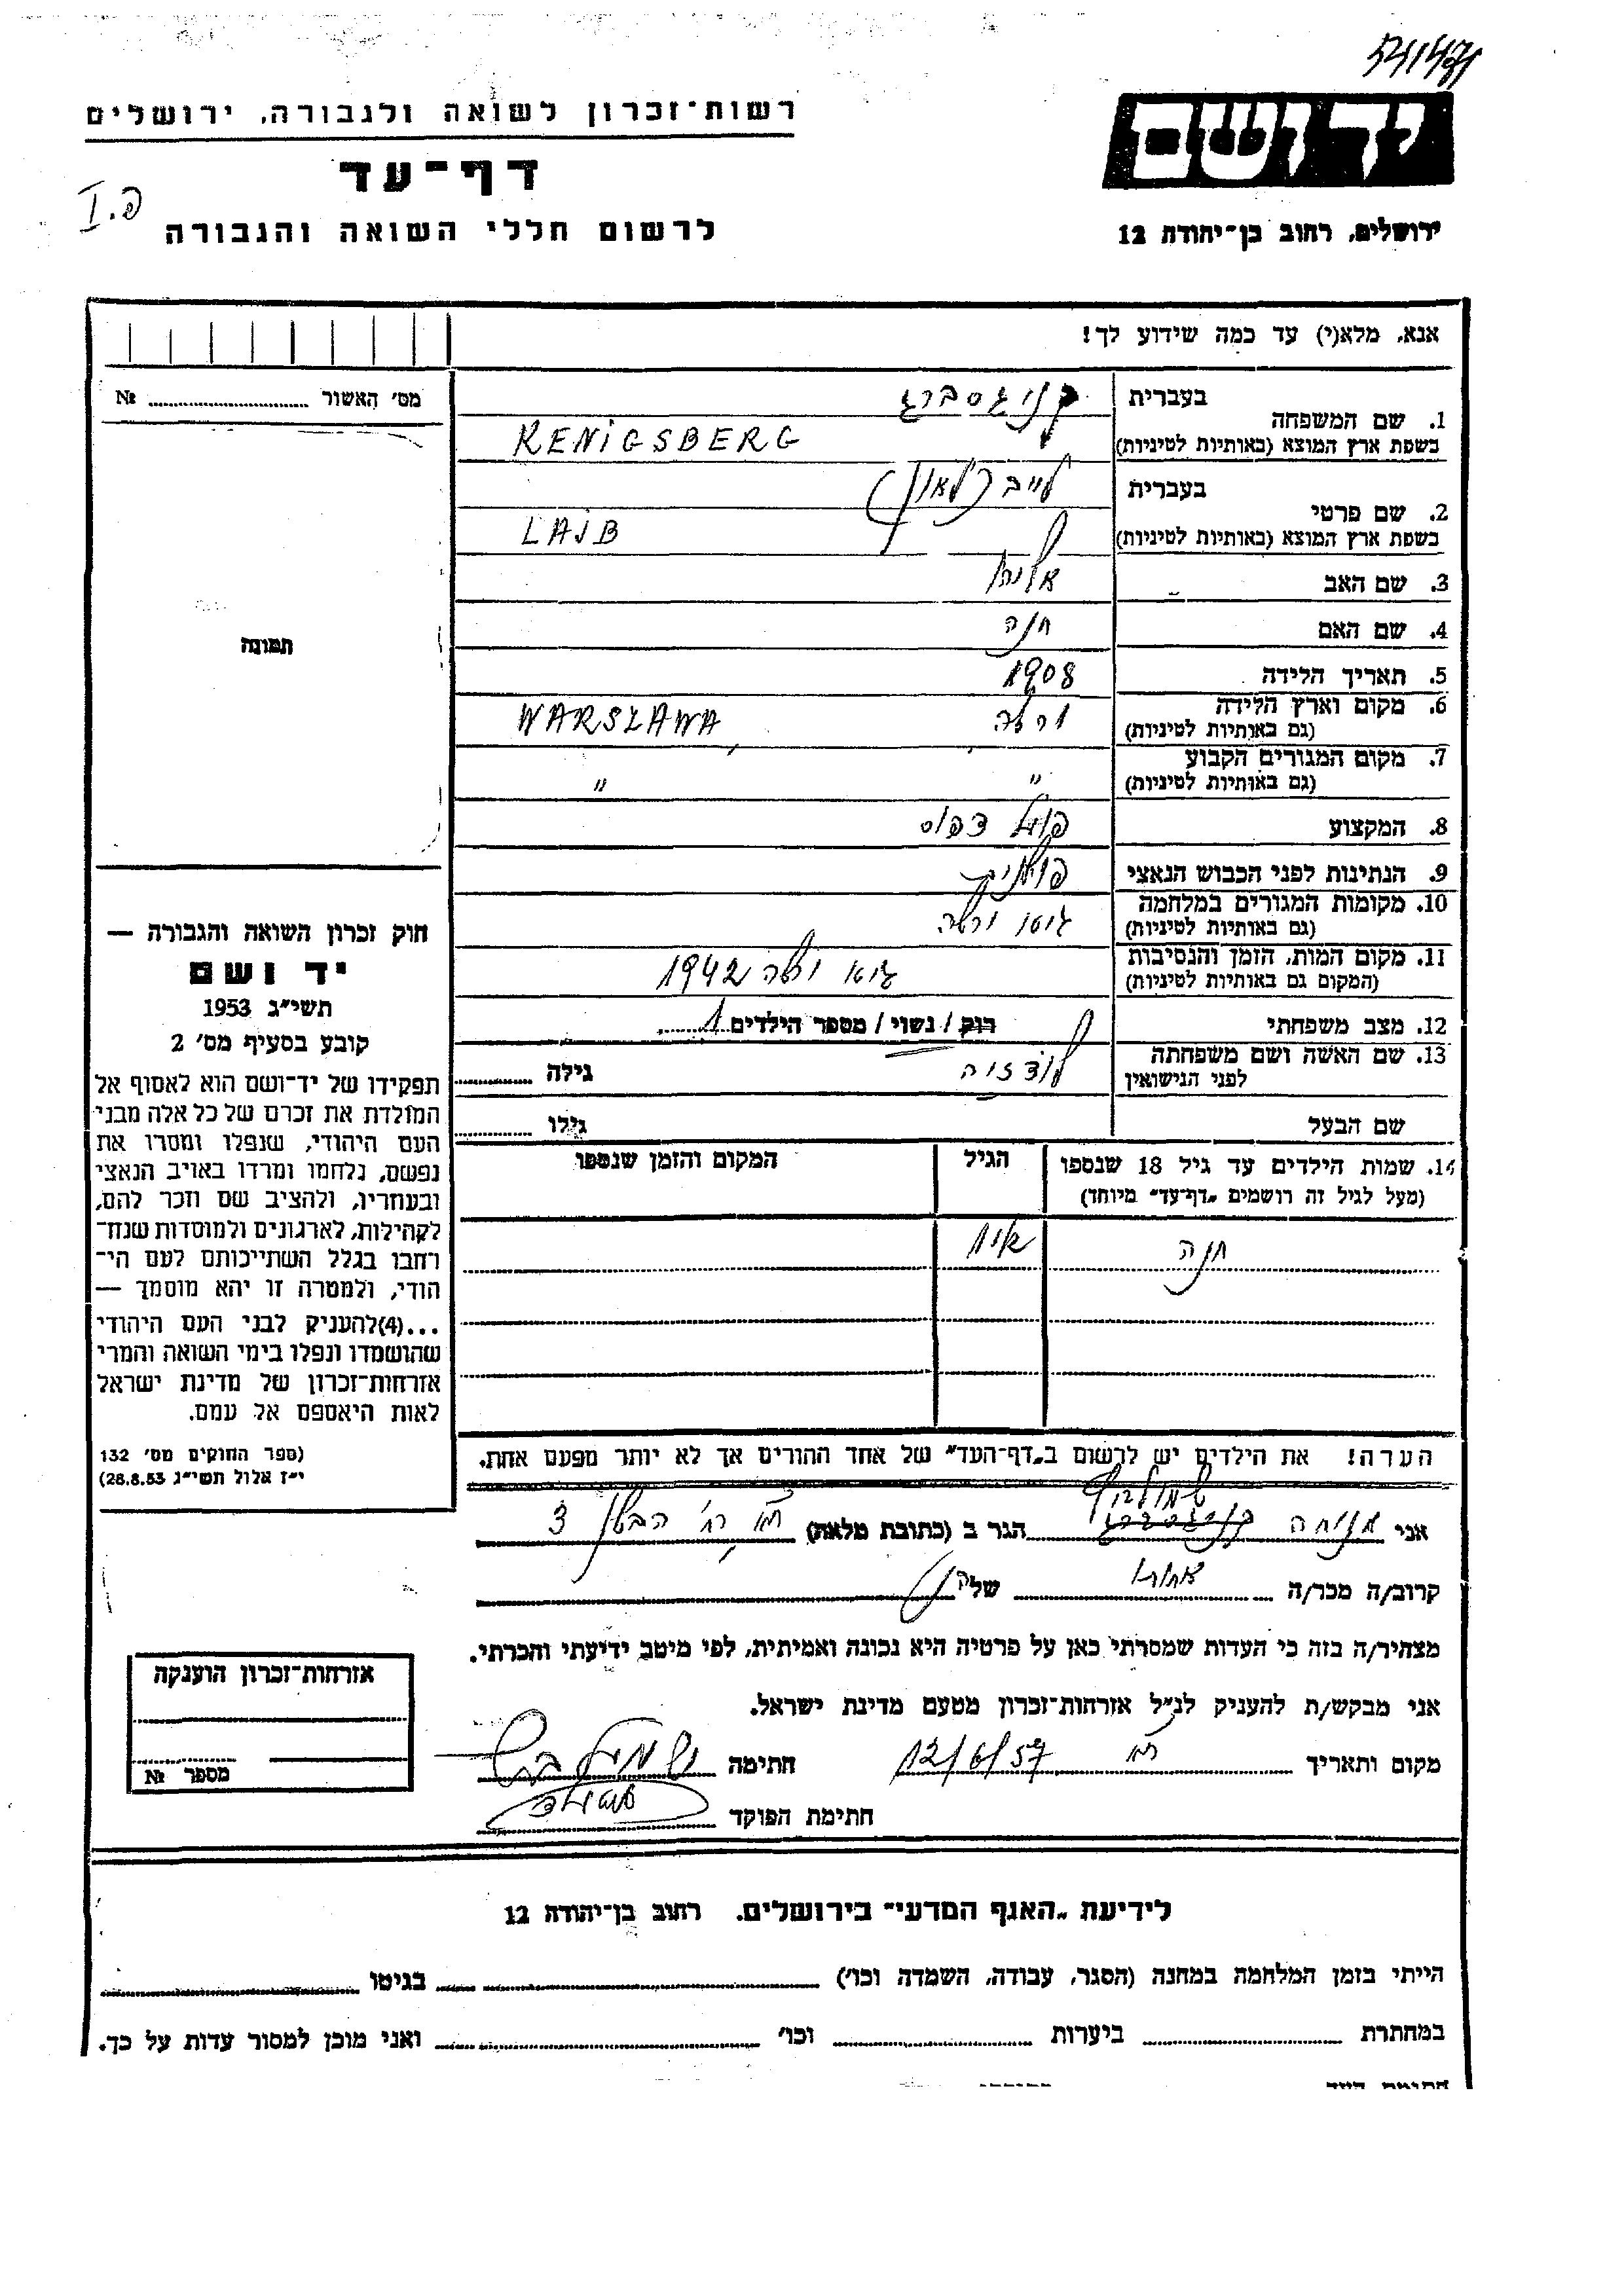 רשות־זכרון לשואה ולגבורה, ירושלים
דף־עד
לרשום חללי השואה והגבורה
יד ושם
ירושלים, רחוב בן־יהודה 12
אנא, מלא(י) עד כמה שידוע לך!
מס׳ האשור № ........
תמונה
1. שם המשפחה בעברית קניגסברג
בשפת ארץ המוצא (באותיות לטיניות) KENIGSBERG
2. שם פרטי בעברית לייב (לאון)
בשפת ארץ המוצא (באותיות לטיניות) LAJB
3. שם האב אליהו
4. שם האם חנה
5. תאריך הלידה 1908
6. מקום וארץ הלידה (גם באותיות לטיניות) ורשה WARSZAWA
7. מקום המגורים הקבוע (גם באותיות לטיניות) " "
8. המקצוע פועל דפוס
9. הנתינות לפני הכבוש הנאצי פולנית
10. מקומות המגורים במלחמה (גם באותיות לטיניות) גיטו ורשה
11. מקום המות, הזמן והנסיבות (המקום גם באותיות לטיניות) גיטו ורשה 1942
12. מצב משפחתי רווק / נשוי / מספר הילדים 1
13. שם האשה ושם משפחתה לפני הנישואין גילה ........
שם הבעל גילו ........
14. שמות הילדים עד גיל 18 שנספו (מעל לגיל זה רושמים „דף־עד" מיוחד) הגיל המקום והזמן שנספו
חנה
הערה! את הילדים יש לרשום ב„דף־העד" של אחד ההורים אך לא יותר מפעם אחת.
חוק זכרון השואה והגבורה —
יד ושם
תשי״ג 1953
קובע בסעיף מס׳ 2
תפקידו של יד־ושם הוא לאסוף אל
המולדת את זכרם של כל אלה מבני
העם היהודי, שנפלו ומסרו את
נפשם, נלחמו ומרדו באויב הנאצי
ובעוזריו, ולהציב שם וזכר להם,
לקהילות, לארגונים ולמוסדות שנח־
רחבו בגלל השתייכותם לעם הי־
הודי, ולמטרה זו יהא מוסמך —
...(4)להעניק לבני העם היהודי
שהושמדו ונפלו בימי השואה והמרי
אזרחות־זכרון של מדינת ישראל
לאות היאספם אל עמם.
(ספר החוקים מס׳ 132
י״ז אלול תשי״ג 28.8.53)
אני מנוחה קניגסברג הגר ב (כתובת מלאה) רח׳
קרוב/ה מכר/ה אחותו של
מצהיר/ה בזה כי העדות שמסרתי כאן על פרטיה היא נכונה ואמיתית, לפי מיטב ידיעתי והכרתי.
אני מבקש/ת להעניק לנ״ל אזרחות־זכרון מטעם מדינת ישראל.
מקום ותאריך 12/6/57 חתימה
חתימת הפוקד
אזרחות־זכרון הוענקה
מספר №
לידיעת „האגף המדעי" בירושלים. רחוב בן־יהודה 12
הייתי בזמן המלחמה במחנה (הסגר, עבודה, השמדה וכו׳) ........ בגיטו ........
במחתרת ........ ביערות ........ וכו׳ ........ ואני מוכן למסור עדות על כך.